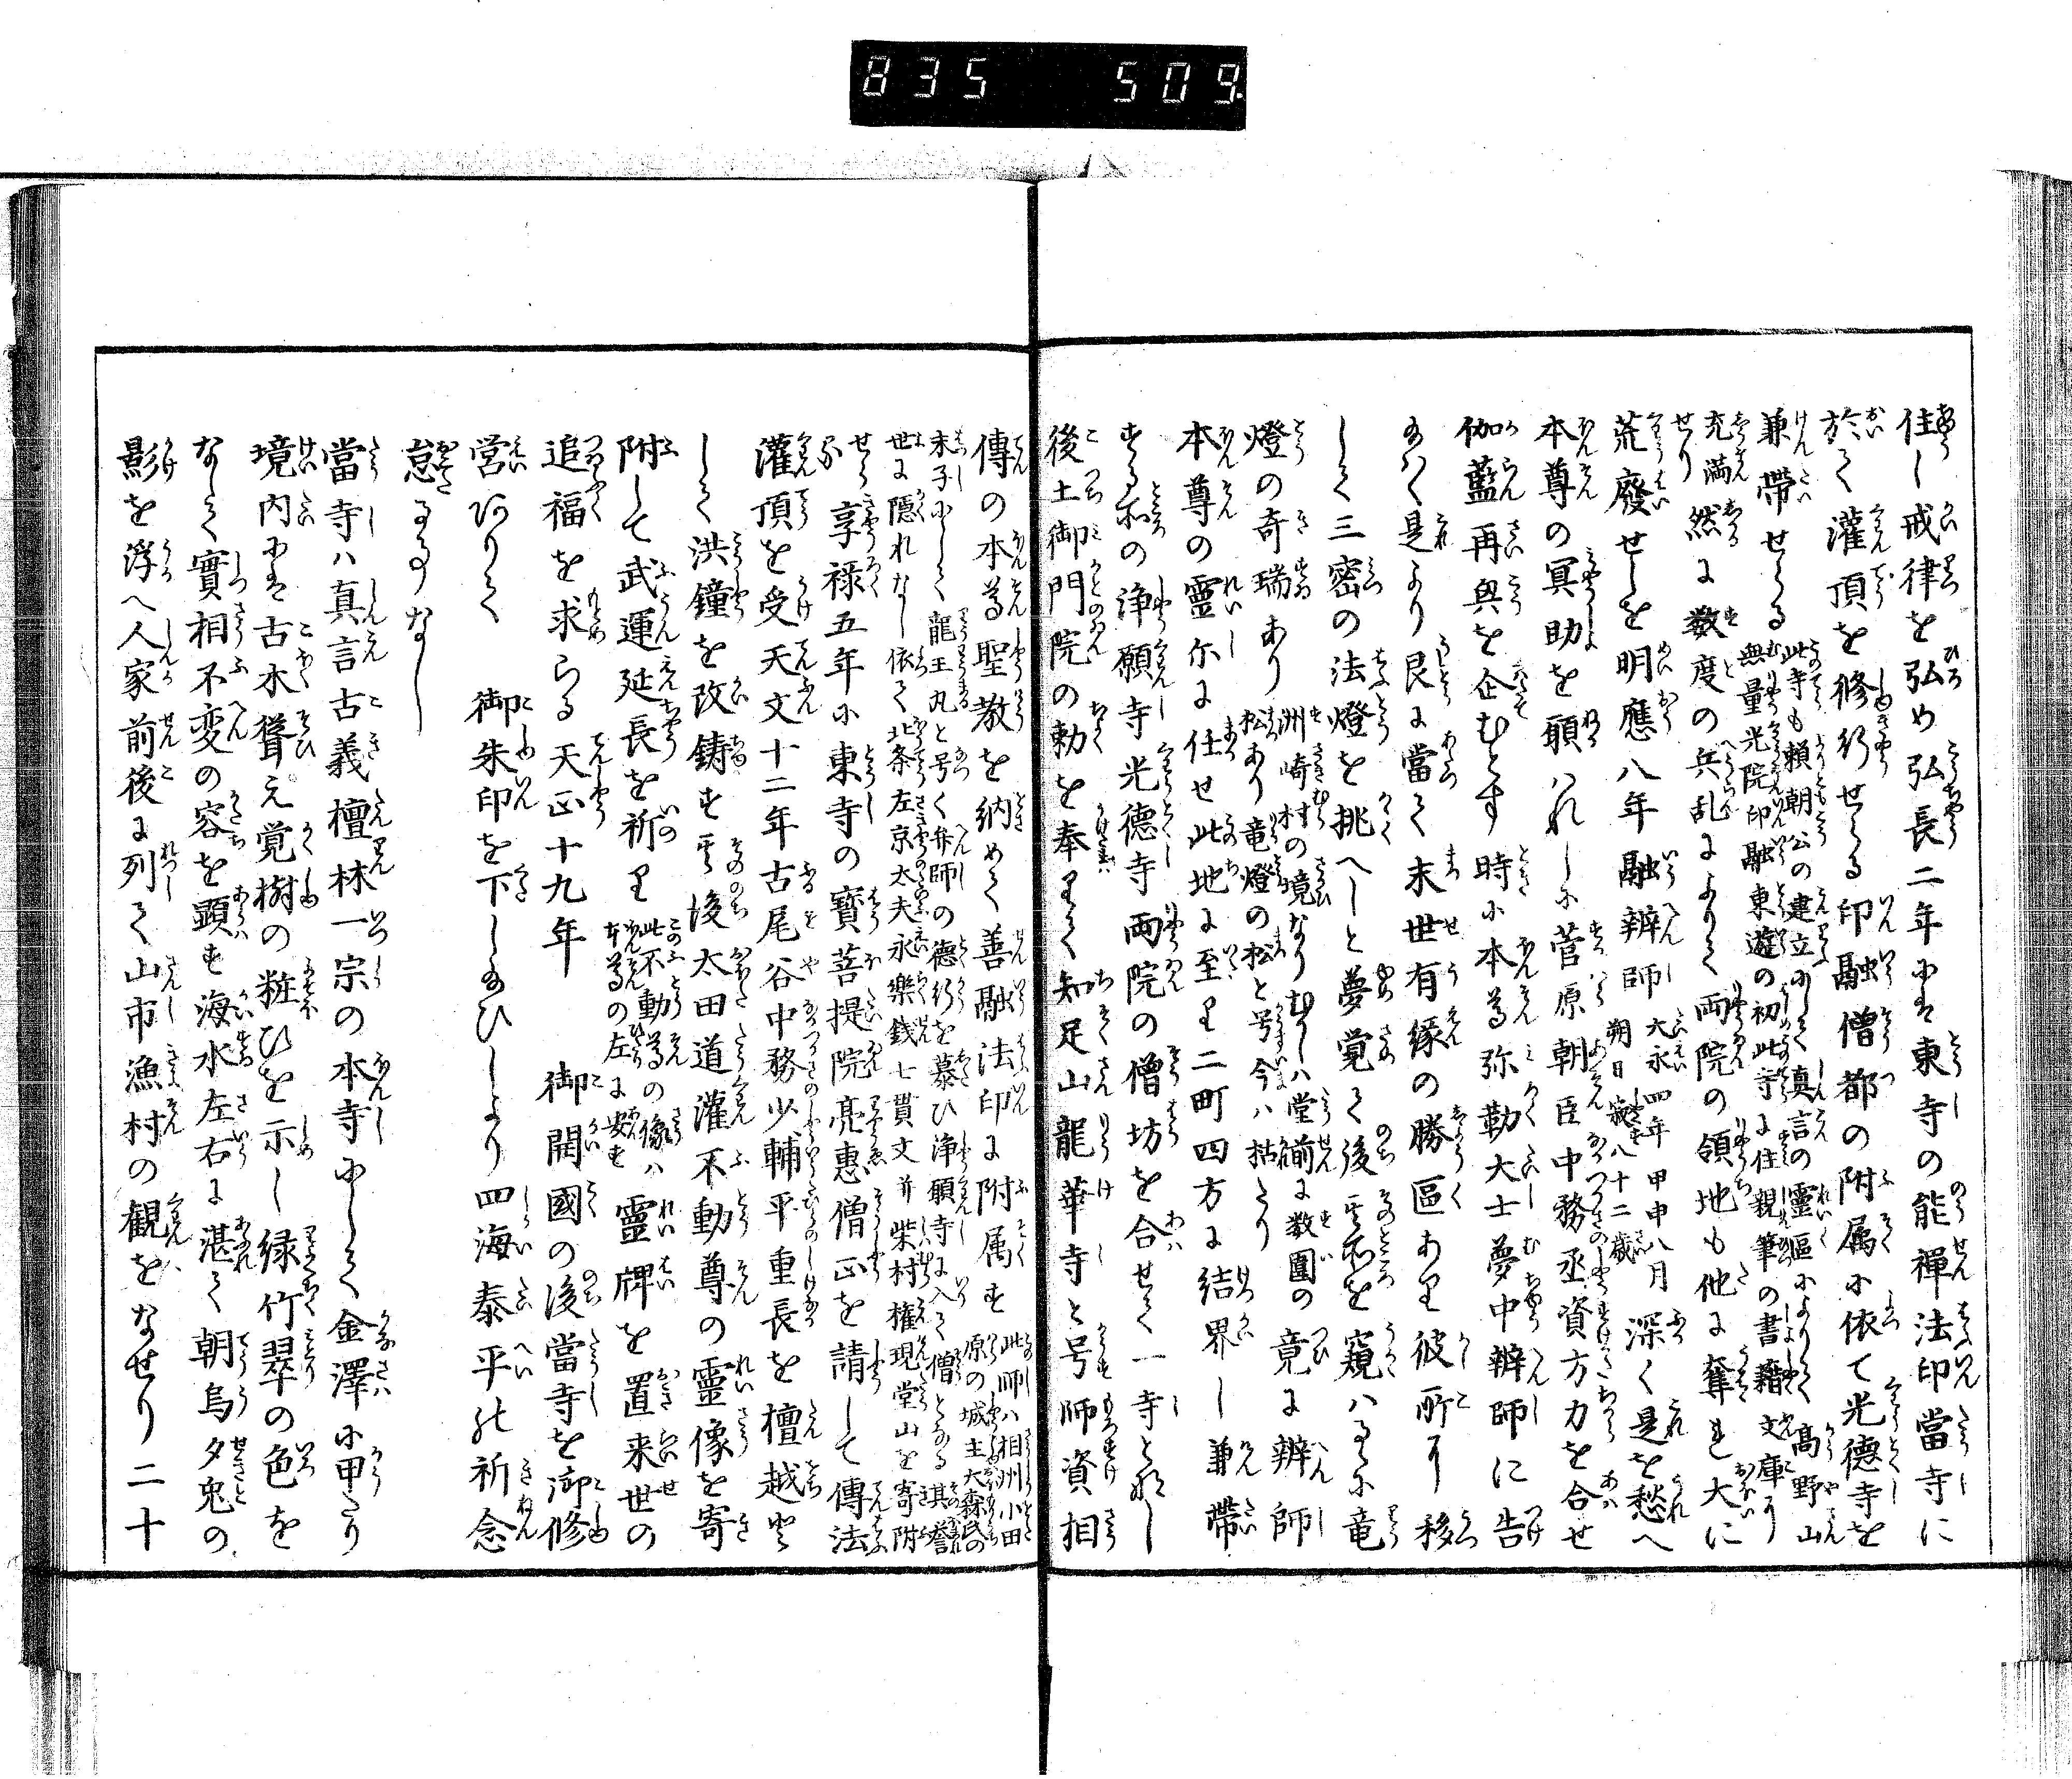 835 509
住し戒律を弘め弘長二年にハ東寺の能禅法印當寺に
於て灌頂を修行せらる印融僧都の附属に依て光徳寺を
兼帯せらる
此寺も頼朝公の建立にして真言の靈區によりて高野山
無量光院印融東遊の初此寺に住親筆の書籍文庫に
充満
せり
然に数度の兵乱によりて両院の領地も他に奪れ大に
荒廢せしを明應八年融辨師
大永四年甲申八月
朔日寂八十二歳
深く是を愁へ
本尊の冥助を願ハれしに菅原朝臣中務丞資方力を合せ
伽藍再興を企むとす時に本尊弥勒大士夢中辨師に告
給ハく是より艮に當て末世有縁の勝區あり彼所に移
して三密の法燈を挑へしと夢覚て後其所を窺ハるに竜
燈の奇瑞あり
洲崎村の境なりむかしハ堂前に数圍の
松あり竜燈の松と号今ハ枯たり
竟に辨師
本尊の靈尓に任せ此地に至り二町四方に結界し兼帯
する所の浄願寺光徳寺両院の僧坊を合せて一寺と成し
後土御門院の勅を奉りて知足山龍華寺と号師資相
傳の本尊聖教を納めて善融法印に附属す
此師ハ相洲小田
原の城主大森氏の
末子にして龍王丸と号く弁師の德行を慕ひ浄願寺に入て僧となる其誉
世に隠れなし依て北条左京太夫永樂銭七貫文并柴村権現堂山を寄附
せらる
享禄五年に東寺の寳菩提院亮惠僧正を請して傳法
灌頂を受天文十二年古尾谷中務少輔平重長を檀越と
して洪鐘を改鋳す其後太田道灌不動尊の靈像を寄
附して武運延長を祈り
此不動尊の像ハ
本尊の左に安す
靈牌を置来世の
追福を求らる天正十九年 御開國の後當寺を御修
営ありて 御朱印を下し給ひしより四海泰平の祈念
怠る事なし
當寺ハ真言古義檀林一宗の本寺にして金澤に甲たり
境内にハ古木聳え覚樹の粧ひを示し緑竹翠の色を
なして實相不変の容を顕す海水左右に湛て朝烏夕兎の
影を浮へ人家前後に列て山市漁村の観をなせり二十